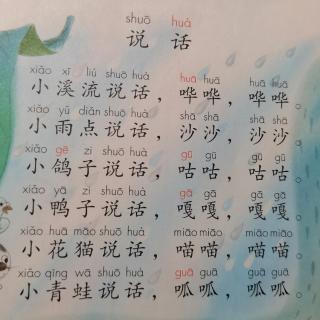 shuō huà
说 话
xiǎo xī liú shuō huà huā huā huā huā
小溪流说话，哗哗，哗哗。
xiǎo yǔ diǎn shuō huà shā shā shā shā
小雨点说话，沙沙，沙沙。
xiǎo gē zi shuō huà gū gū gū gū
小鸽子说话，咕咕，咕咕。
xiǎo yā zi shuō huà gā gā gā gā
小鸭子说话，嘎嘎，嘎嘎。
xiǎo huā māo shuō huà miāo miāo miāo miāo
小花猫说话，喵喵，喵喵。
xiǎo qīng wā shuō huà guā guā guā guā
小青蛙说话，呱呱，呱呱。